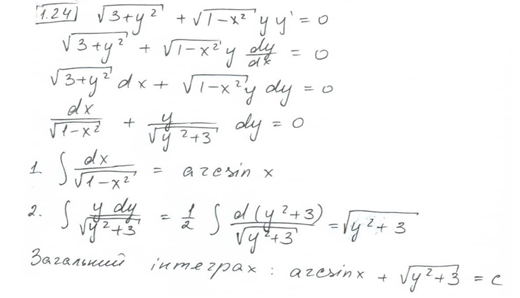 1.24 √(3+y²) + √(1-x²) y y' = 0
√(3+y²) + √(1-x²) y dy/dx = 0
√(3+y²) dx + √(1-x²) y dy = 0
dx/√(1-x²) + y/√(y²+3) dy = 0
1. ∫ dx/√(1-x²) = arcsin x
2. ∫ y dy/√(y²+3) = 1/2 ∫ d(y²+3)/√(y²+3) = √(y²+3)
Загальний інтеграл : arcsinx + √(y²+3) = c